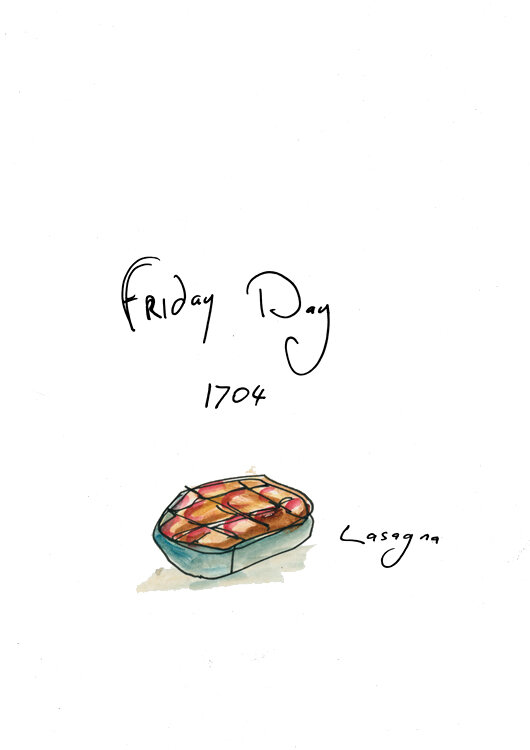 Friday Day
1704
Lasagna